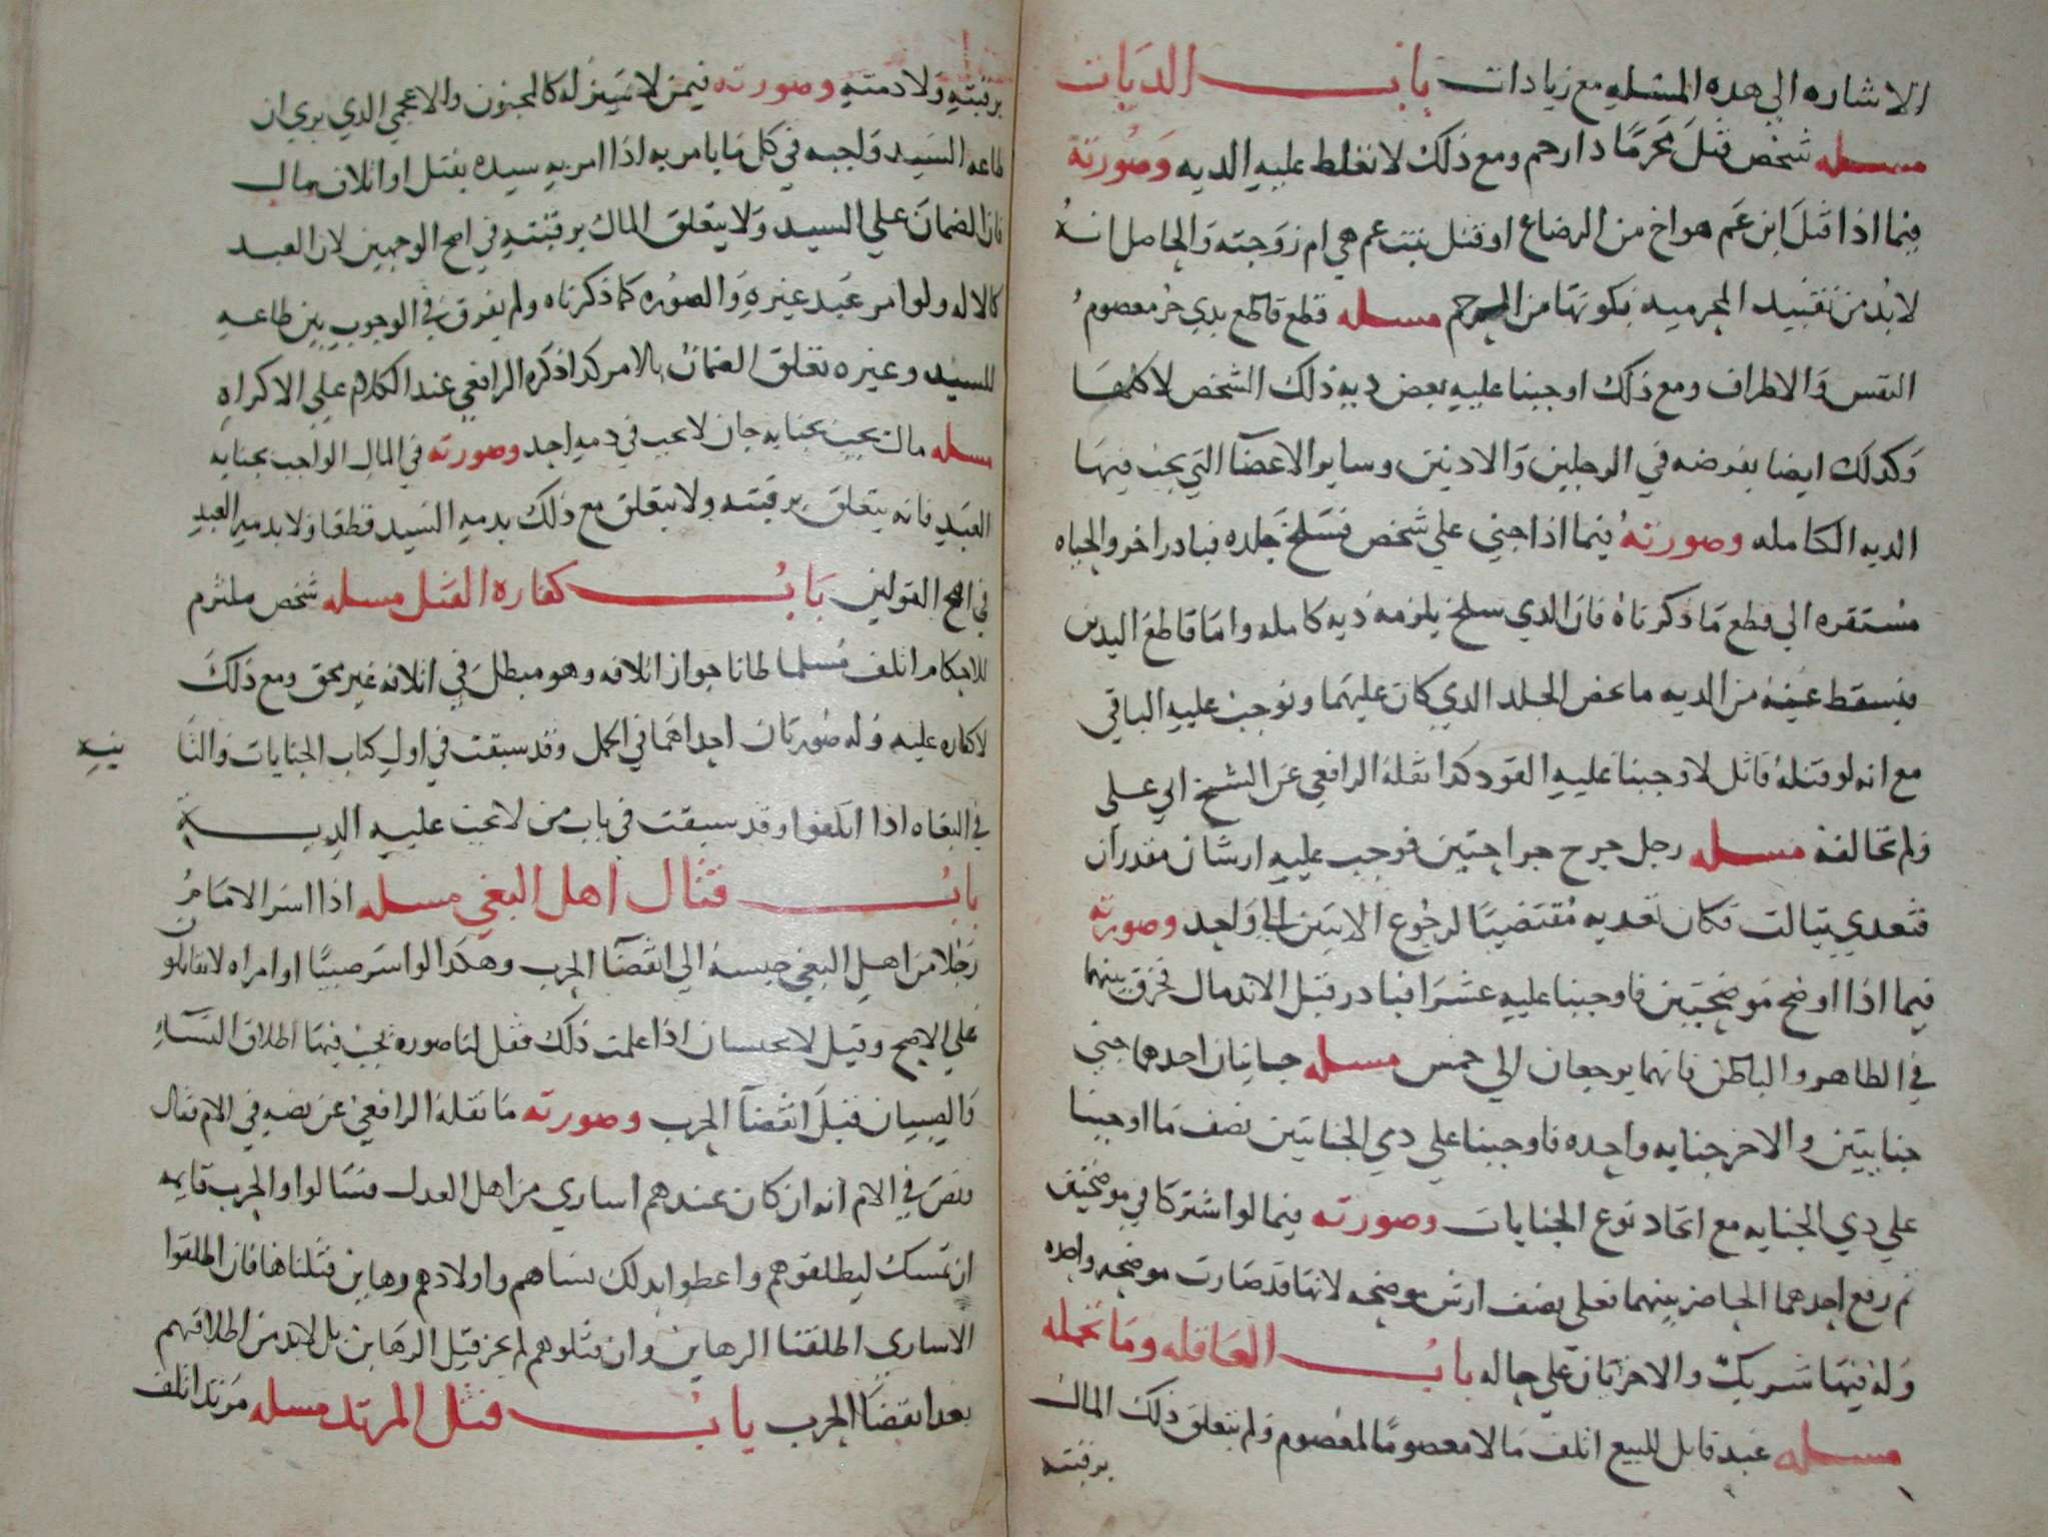 الاشاره الي هده المسله مع زيادات باب الديات
مسله شخص قتل محرما دا رحم ومع ذلك لا تغلط عليه الديه وصورته
فيما اذا قتل ابن عم هو اخ من الرضاع او قتل بنت عم هي ام زوجته والحاصل انه
لا بد من تقييد المحرميه بكونها من الرحم مسله قطع قاطع يدي حر معصوم
النفس والاطراف ومع ذلك اوجبنا عليه بعض ديه ذلك الشخص لا كلها
وكدلك ايضا يفرضه في الرجلين والادنين وساير الاعضآ التي يجب فيها
الديه الكامله وصورته فيما اذا جني علي شخص فسلخ جلده فبادر اخر والحياه
مستقره الي قطع ما ذكرناه فان الدي سلخ يلزمه ديه كامله واما قاطع اليدين
فيسقط عنه من الديه ما يخص الجلد الدي كان عليهما ونوجب عليه الباقي
مع انه لو قتله قاتل لاوجبنا عليه القود كدا نقله الرافعي عن الشيخ ابي علي
ولم يخالفه مسله رجل جرح جراحتين فوجب عليه ارشان مقدران
فتعدي بثالت فكان تعديه مقتضيا لرجوع الاثنين الي واحد وصورته
فيما اذا اوضح موضحتين فاوجبنا عليه عشرا فبادر قبل الاندمال فخرق بينهما
في الطاهر والباطن فانهما يرجعان الي خمس مسله جانيان احدهما جني
جنايتين والاخر جنايه واحده فاوجبنا علي دي الجنايتين نصف ما اوجبنا
علي دي الجنايه مع اتحاد نوع الجنايات وصورته فيما لو اشتركا في موضحتين
ثم رفع احدهما الحاجز بينهما فعلي نصف ارش موضحه لانها قد صارت موضحه واحده
وله فيها شريك والاخر باق علي حاله باب العاقله وما تحمله
مسله عبد قابل للبيع اتلف مالا معصوما لمعصوم ولم يتعلق ذلك المال
برقبته
برقبته ولا دمته وصورته فيمن لا تمييز له كالمجنون والاعجمي الدي يري ان
طاعه السيد واجبه في كل ما يامر به اذا امر به سيده بقتل او اتلاف مال
فان الضمان علي السيد ولا يتعلق المال برقبته في اصح الوجهين لان العبد
كالاله ولو امر عبد غيره والصوره كما ذكرناه ولم يفرق في الوجوب بين طاعه
للسيد وغيره تعلق الضمان بالامر كدا ذكره الرافعي عند الكلام علي الاكراه
مسله مال يجب بجنايه جان لا يجب في دمه احد وصورته في المال الواجب بجنايه
العبد فانه يتعلق برقبته ولا يتعلق مع ذلك بدمه السيد قطعا ولا بدمه العبد
في اصح القولين باب كفاره القتل مسله شخص ملتزم
للاحكام اتلف مسلما ظانا جواز اتلافه وهو مبطل في اتلافه غير محق ومع ذلك
لا كفاره عليه وله صورتان احداهما في الحمل وقد سبقت في اول كتاب الجنايات والثا
نيه
في البغاه اذا اتلفوا وقد سبقت في باب من لا تجب عليه الديه
باب قتال اهل البغي مسله اذا اسر الامام
رجلا من اهل البغي حبسه الي انقضآ الحرب وهكدا لو اسر صبيا او امراه لا يقاتلون
علي الاصح وقيل لا يحبسان اذا علمت ذلك فقل لنا صوره يجب فيها اطلاق النسآء
والصبيان قبل انقضآ الحرب وصورته ما نقله الرافعي عن نصه في الام فقال
ونص في الام انه ان كان عندهم اساري من اهل العدل فسالوا والحرب قايمه
ان نمسك ليطلقوهم واعطوا بدلك نساهم واولادهم رهاين قبلناها فان اطلقوا
الاساري اطلقنا الرهاين وان قتلوهم لم يجز قتل الرهاين بل لا بد من اطلاقهم
بعد انقضآ الحرب باب قتل المرتد مسله مرتد اتلف